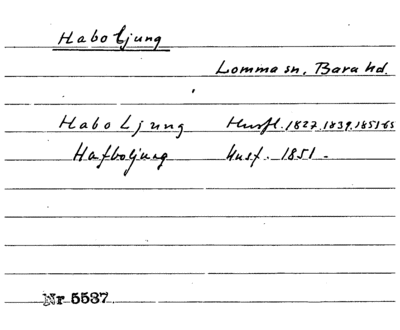 Habo Ljung
Lomma sn, Bara hd.
Habo Ljung Husfl. 1827, 1839, 1851-65
Hafboljung Husf. 1851-
Nr 5537.